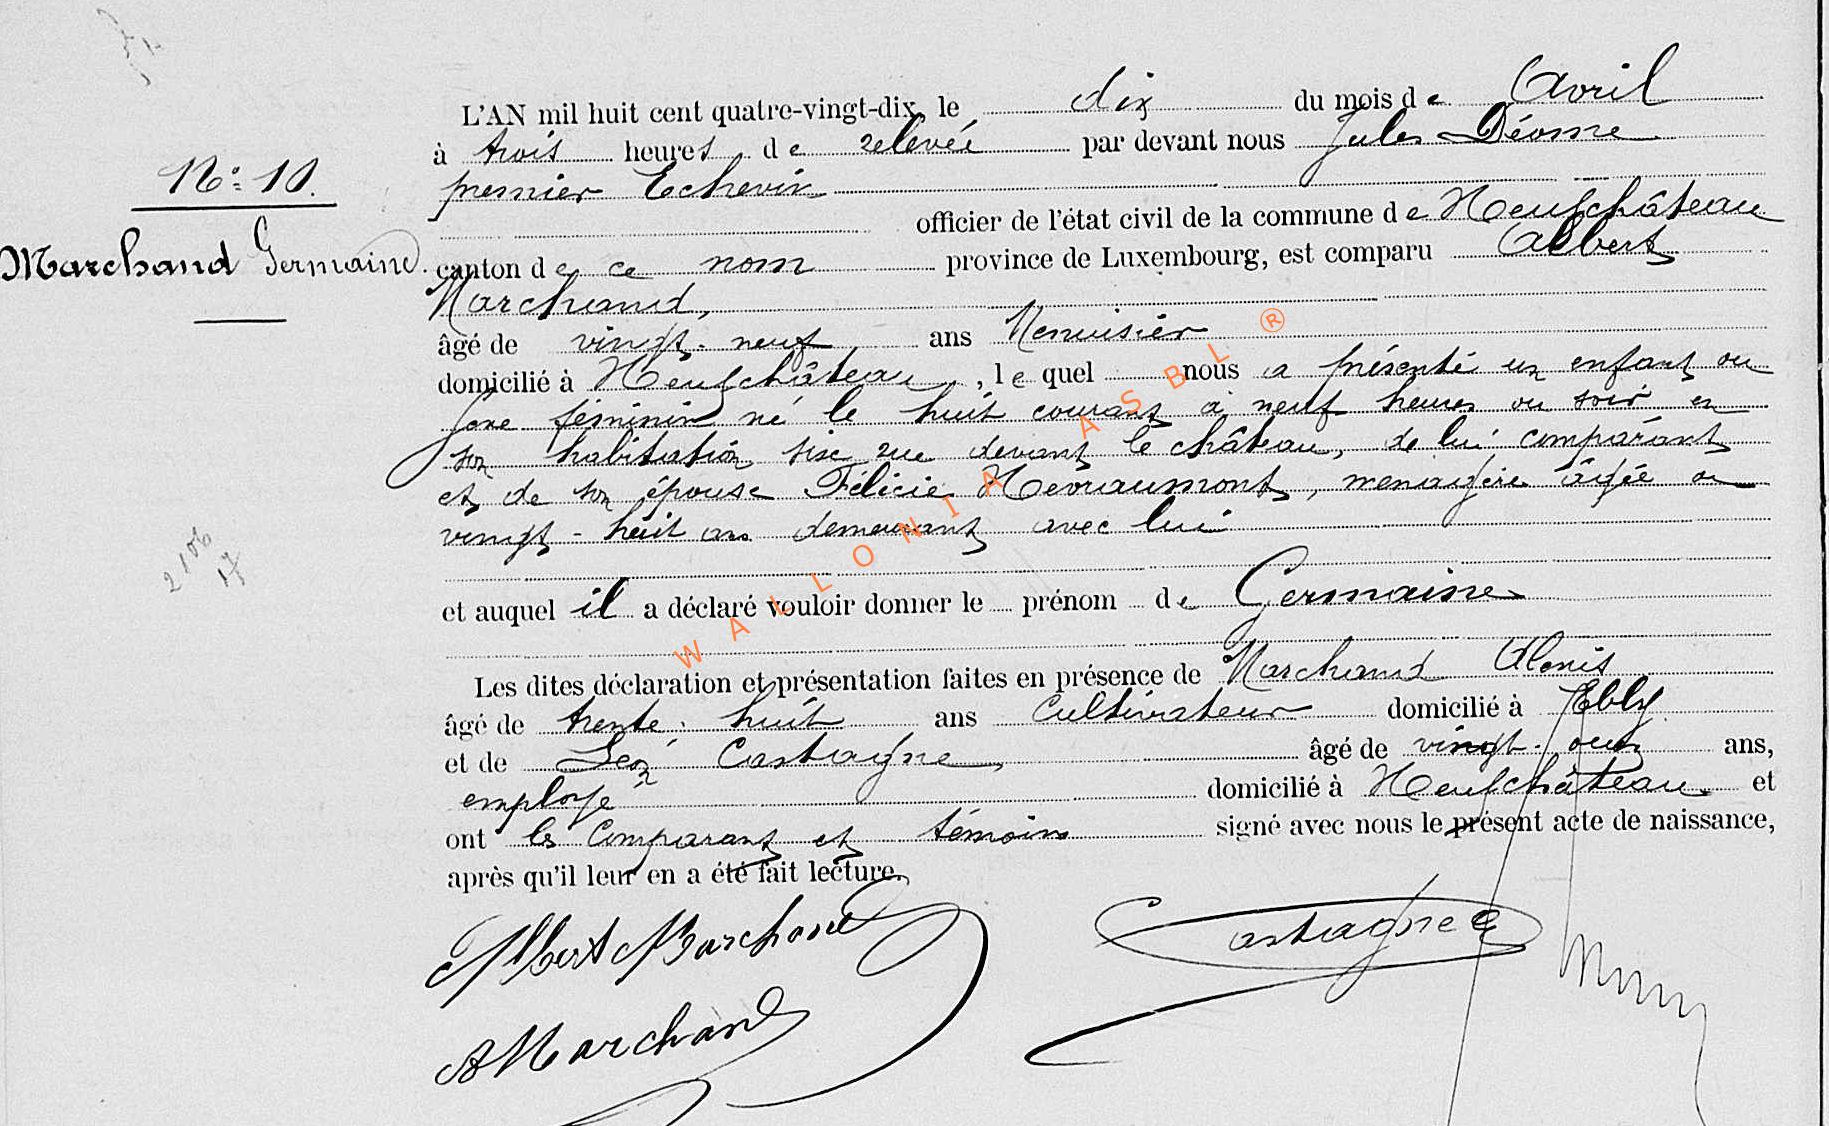 L'AN mil huit cent quatre-vingt-dix, le dix du mois de Avril
à trois heures de relevée par devant nous Jules Déome
premier Echevin
officier de l'état civil de la commune de Neufchâteau
N° 11.
Marchand Germaine.
canton de ce nom province de Luxembourg, est comparu Albert
Marchand,
âgé de vingt-neuf ans Menuisier
domicilié à Neufchâteau, lequel nous a présenté un enfant du
sexe féminin né le huit courant à neuf heures du soir en
son habitation sise rue devant le château, de lui comparant
et de son épouse Félicie Hevraumont, menagère âgée de
vingt-huit ans demeurant avec lui
et auquel il a déclaré vouloir donner le prénom de Germaine
Les dites déclaration et présentation faites en présence de Marchand Alexis
âgé de trente-huit ans Cultivateur domicilié à Ebly
et de Léon Castagne, âgé de vingt-deux ans,
employé domicilié à Neufchâteau et
ont les Comparant et témoins signé avec nous le présent acte de naissance,
après qu'il leur en a été fait lecture.
Albert Marchand
Castagne
A Marchand
2106
17
WALLONIA ASBL ®